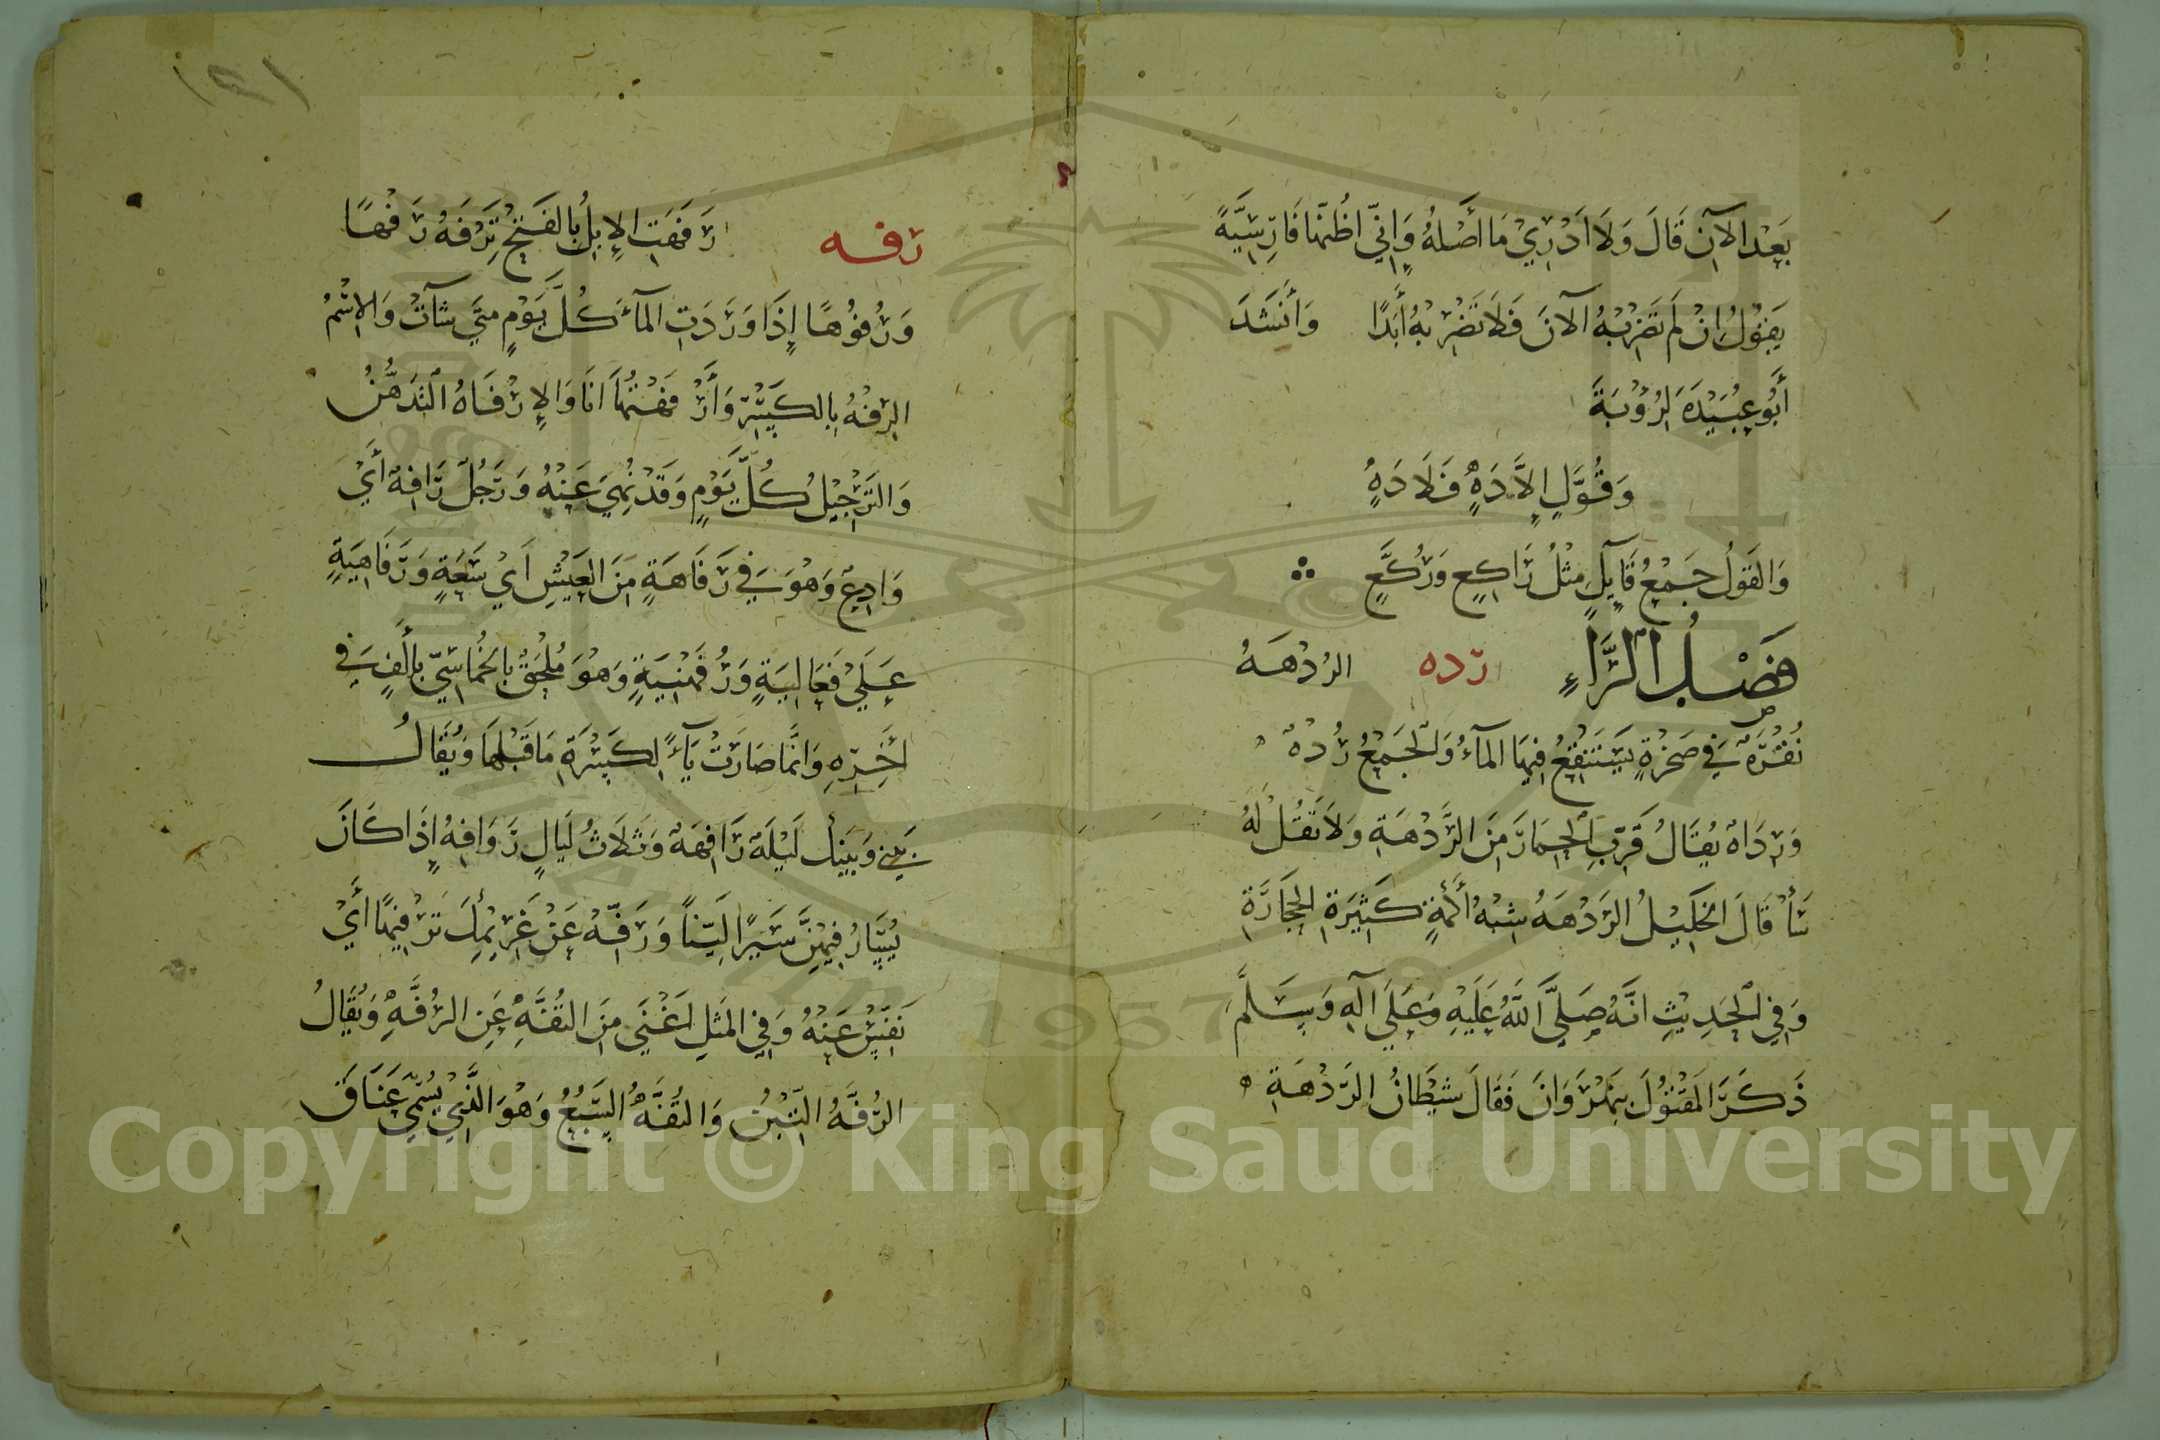 بَعْدَ الآنَ قَالَ وَلَا اَدْرِيْ مَا أَصْلُهُ وَاِنِّي اظُنُّهَا فَارِسِيَّةً
يَقُوْلُ اِنْ لَمْ تَضْرِبْهُ الآنَ فَلَا تَضْرِبْهُ أَبَدًا وَأَنْشَدَ
أَبُو عُبَيْدَةَ لِرُؤْبَةَ
وَقُوَّلٍ اِلَّا دَهٍ فَلَا دَهٍ
وَالقُوَّلُ جَمْعُ قَآيِلٍ مِثْلُ رَاكِعٍ وَرُكَّعٍ
فَصْلُ الرَّاءِ رده الرَدْهَةُ
نُقْرَةٌ فِي صَخْرَةٍ يَسْتَنْقِعُ فِيهَا المآءُ وَالجَمْعُ رُدْهٌ
وَرِدَاهٌ يُقَالُ قَرِّبِ الحِمَارَ مِنَ الرَّدْهَةِ وَلَا تَقُلْ لَهُ
سَأْ قَالَ الخَلِيْلُ الرَدْهَةُ شِبْهُ أَكَمَةٍ كَثِيْرَةِ الحِجَارَةِ
وَفِي الحَدِيْثِ انَّهُ صَلَّى اللهُ عَلَيْهِ وَعَلَى آلِهِ وَسَلَّمَ
ذَكَرَ المَقْتُوْلَ بِنَهْرَوَانَ فَقَالَ شَيْطَانُ الرَدْهَةِ
رفه رَفَهَتِ الإِبِلُ بِالفَتْحِ تَرْفَهُ رَفْهًا
وَرُفُوْهًا إِذَا وَرَدَتِ المآءَ كُلَّ يَوْمٍ مَتَى شَآتْ وَالإِسْمُ
الرِفْهُ بِالكَسْرِ وَأَرْفَهْتُهَا انَا وَالإِرْفَاهُ التَدَهُّنُ
وَالتَرْجِيْلُ كُلَّ يَوْمٍ وَقَدْ نُهِيَ عَنْهُ وَرَجُلٌ رَافِهٌ أَيْ
وَادِعٌ وَهُوَ فِي رَفَاهَةٍ مِنَ العَيْشِ اَيْ سَعَةٍ وَرَفَاهِيَةٍ
عَلَى فَعَالِيَةٍ وَرُفَهْنِيَةٍ وَهُوَ مُلْحَقٌ بِالخُمَاسِيِّ بِأَلِفٍ فِي
اخِرِهِ وَانَّمَا صَارَتْ يَآءً لِكَسْرَةِ مَا قَبْلَهَا وَيُقَالُ
بَيْنِي وَبَيْنَكَ لَيْلَةٌ رَافِهَةٌ وَثَلَاثُ لَيَالٍ رَوَافِهُ إِذَا كَانَ
يُسَارُ فِيهِنَّ سَيْرًا لَيِّنًا وَرَفِّهْ عَنْ غَرِيْمِكَ تَرْفِيهًا أَيْ
نَفِّسْ عَنْهُ وَفِي المَثَلِ اغْنَى مِنَ التُفَّهِ عَنِ الرُفَّهِ وَيُقَالُ
الرُّفَّهُ التِّبْنُ وَالتُفَّهُ السَّبُعُ وَهُوَ الَّذِيْ يُسَمَّى عَنَاقَ
Copyright © King Saud University
1957